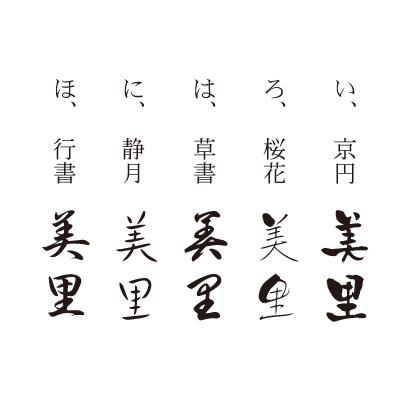 い、京円
美里
ろ、桜花
美里
は、草書
美里
に、静月
美里
ほ、行書
美里